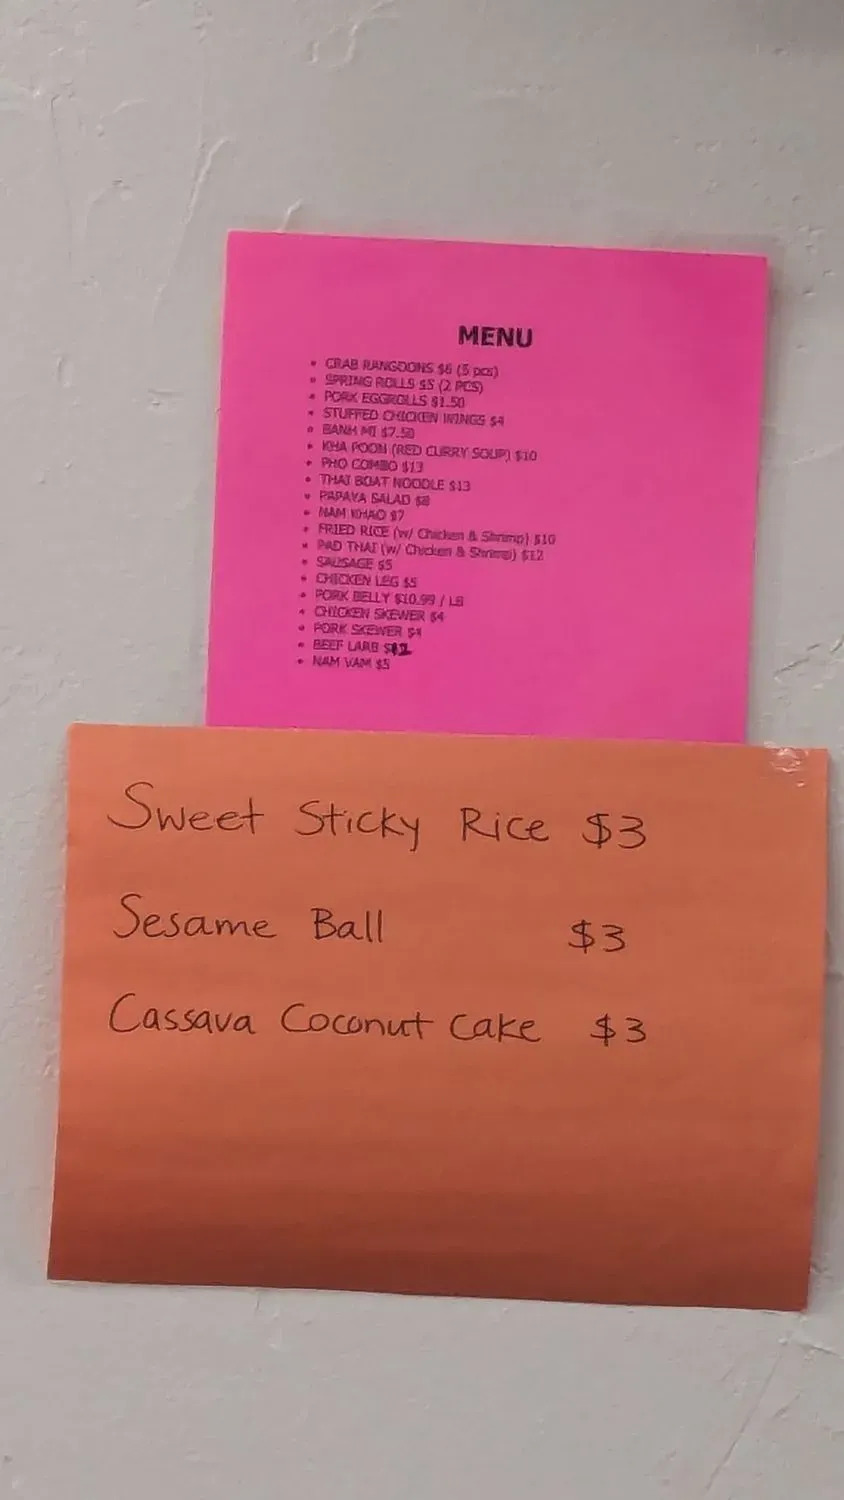 MENU
• CRAB RANGOONS $6 (5 pcs)
• SPRING ROLLS $5 (2 PCS)
• PORK EGGROLLS $1.50
• STUFFED CHICKEN WINGS $4
• BANH MI $7.50
• KHA POON (RED CURRY SOUP) $10
• PHO COMBO $13
• THAI BOAT NOODLE $13
• PAPAYA SALAD $8
• NAM KHAO $7
• FRIED RICE (w/ Chicken & Shrimp) $10
• PAD THAI (w/ Chicken & Shrimp) $12
• SAUSAGE $5
• CHICKEN LEG $5
• PORK BELLY $10.99 / LB
• CHICKEN SKEWER $4
• PORK SKEWER $4
• BEEF LARB $12
• NAM VAM $5
Sweet Sticky Rice $3
Sesame Ball $3
Cassava Coconut Cake $3